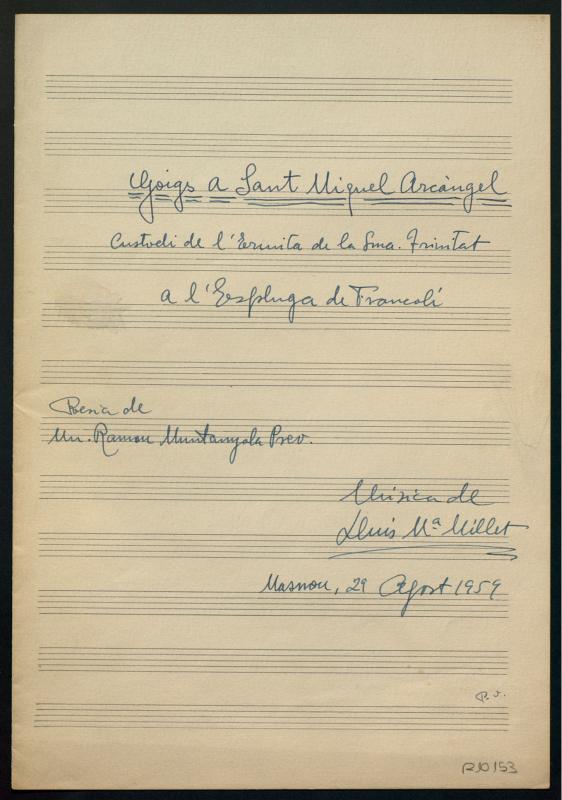 Goigs a Sant Miquel Arcàngel
Custodi de l'Ermita de la Sma. Trinitat
a l'Espluga de Francolí
Poesia de
Mn. Ramon Muntanyola Prev.
Música de
Lluis Mª Millet
Masnou, 29 Agost 1959
P. V.
R.10153